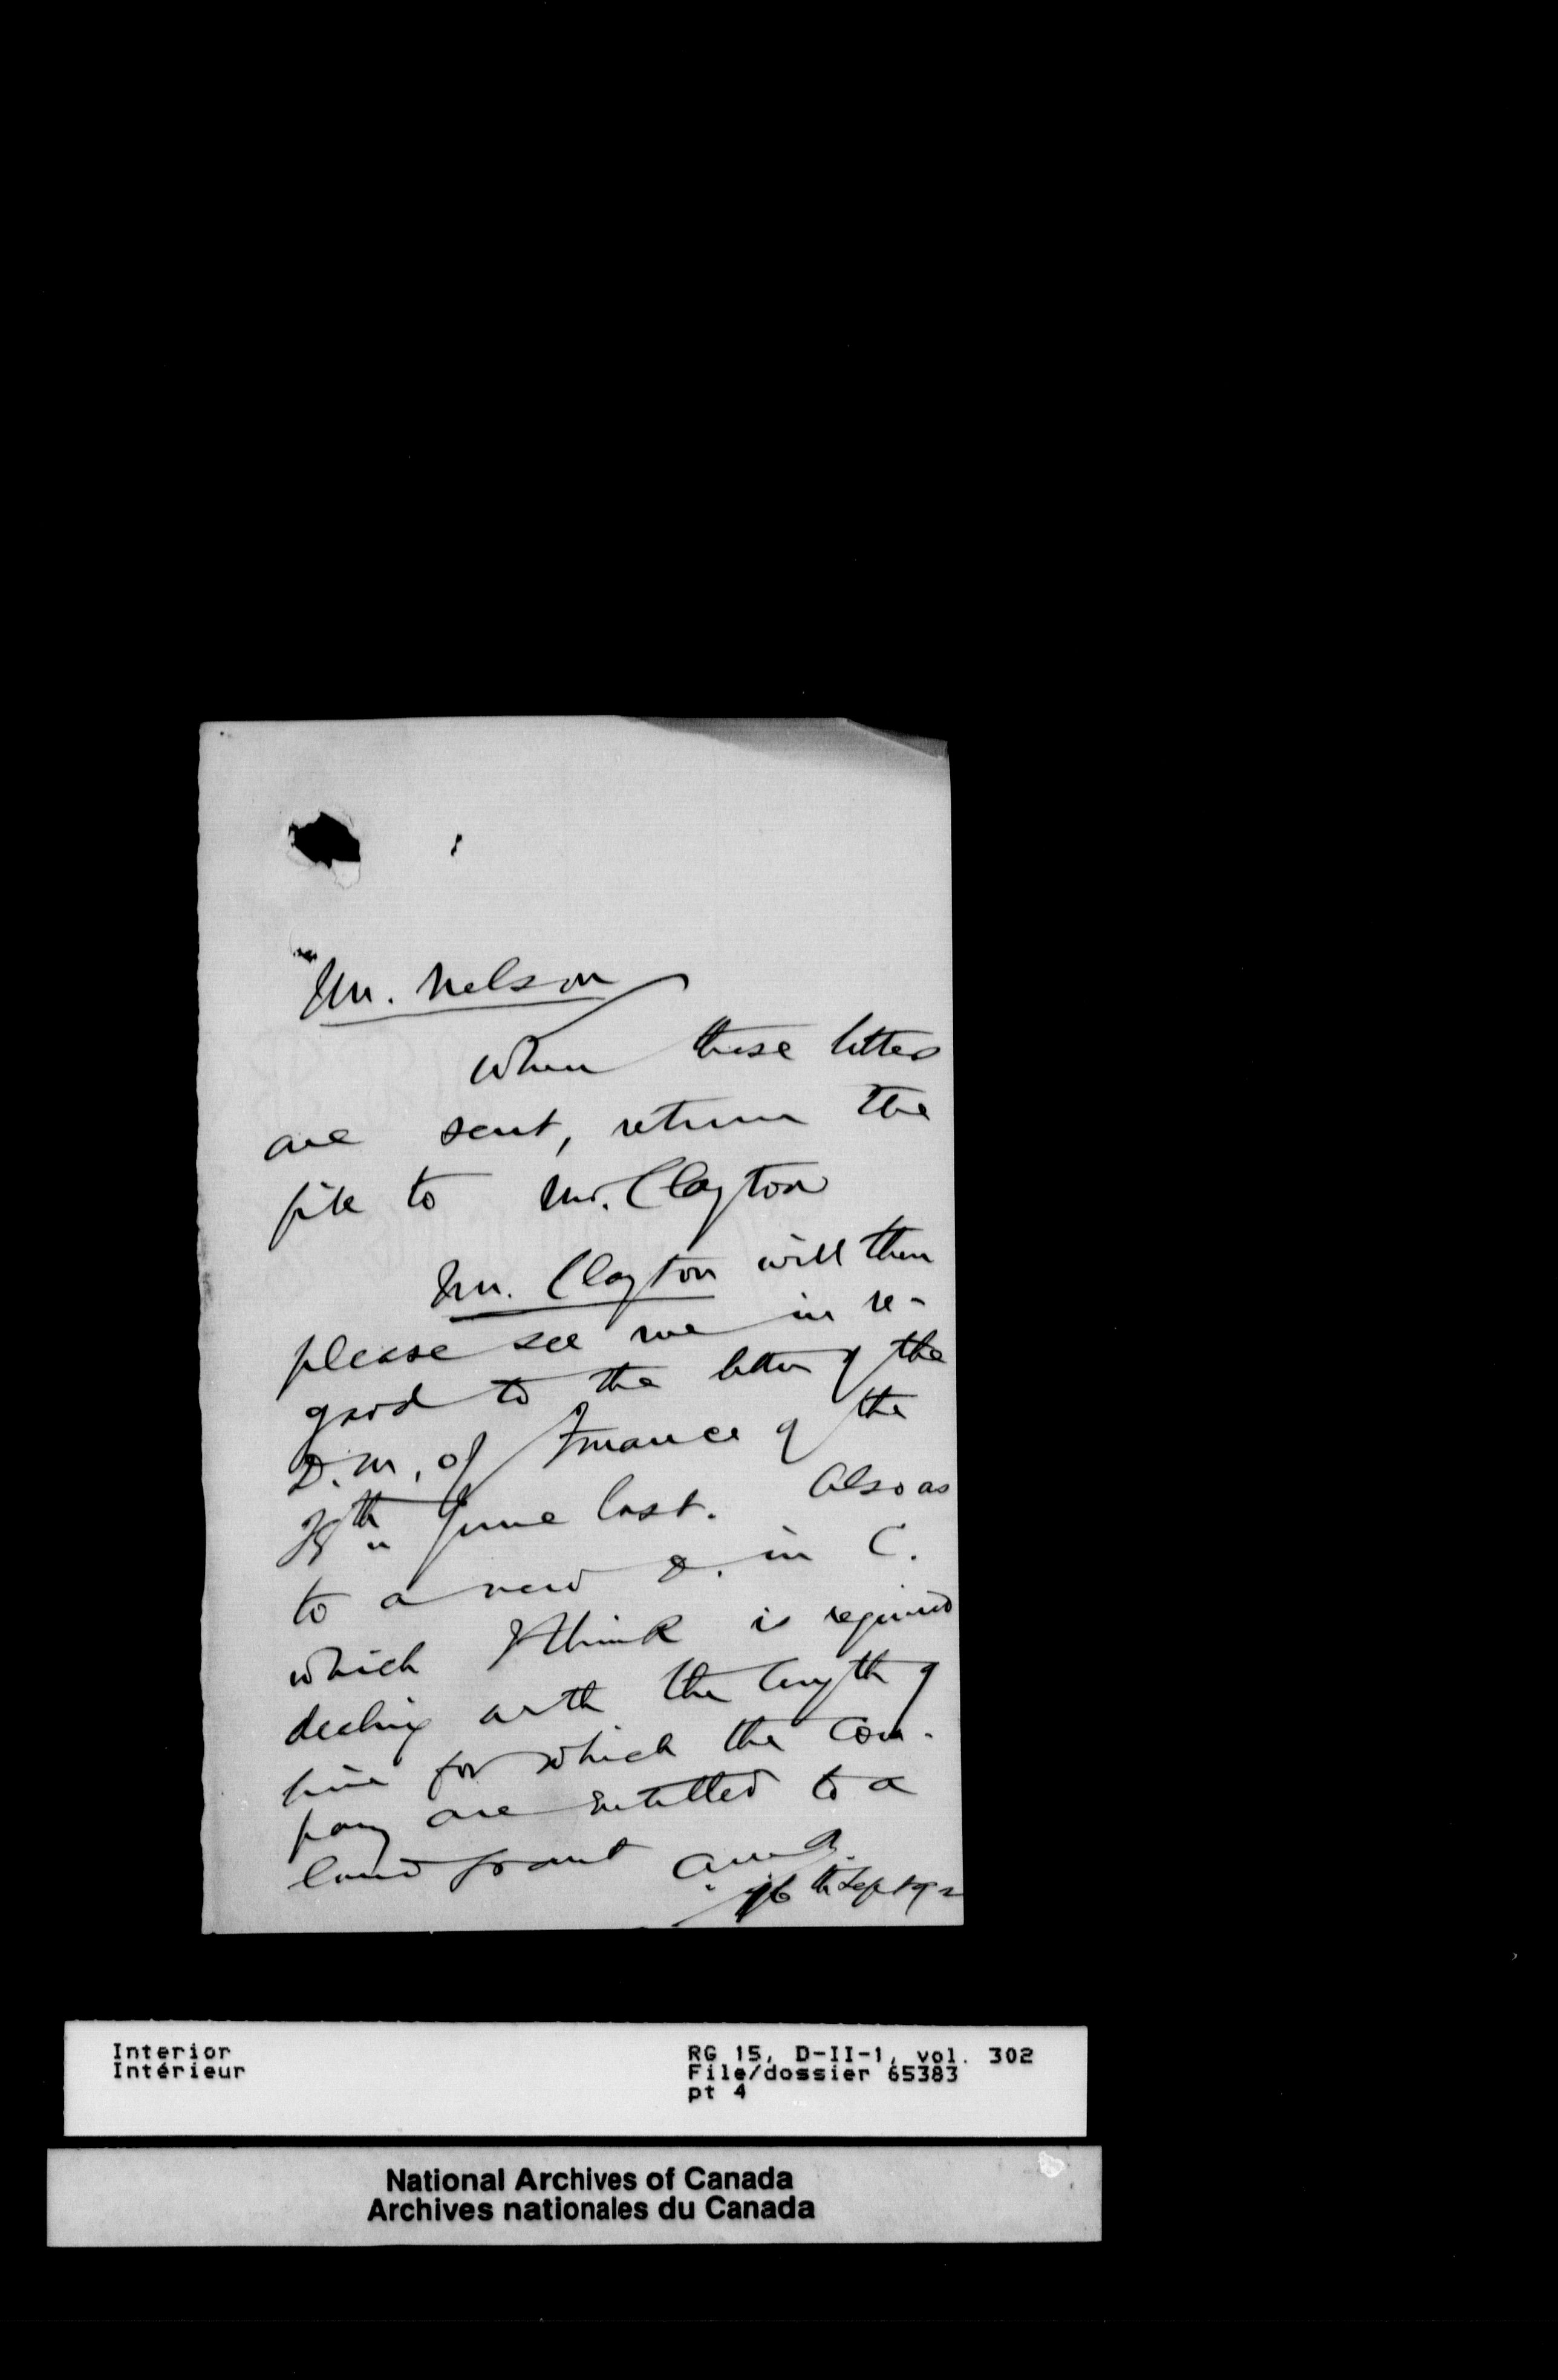 Mr. Nelson
When these letters
are sent, return the
file to Mr. Clayton
Mr. Clayton will then
please see me in re-
gard to the letter of the
D.M. of Finance of the
th June last. Also as
to a new O. in C.
which I think is required
dealing with the length of
line for which the Com-
pany are entitled to a
land grant
16th Sept 92
Interior
Intérieur
RG 15, D-II-1, vol. 302
File/dossier 65383
pt 4
National Archives of Canada
Archives nationales du Canada